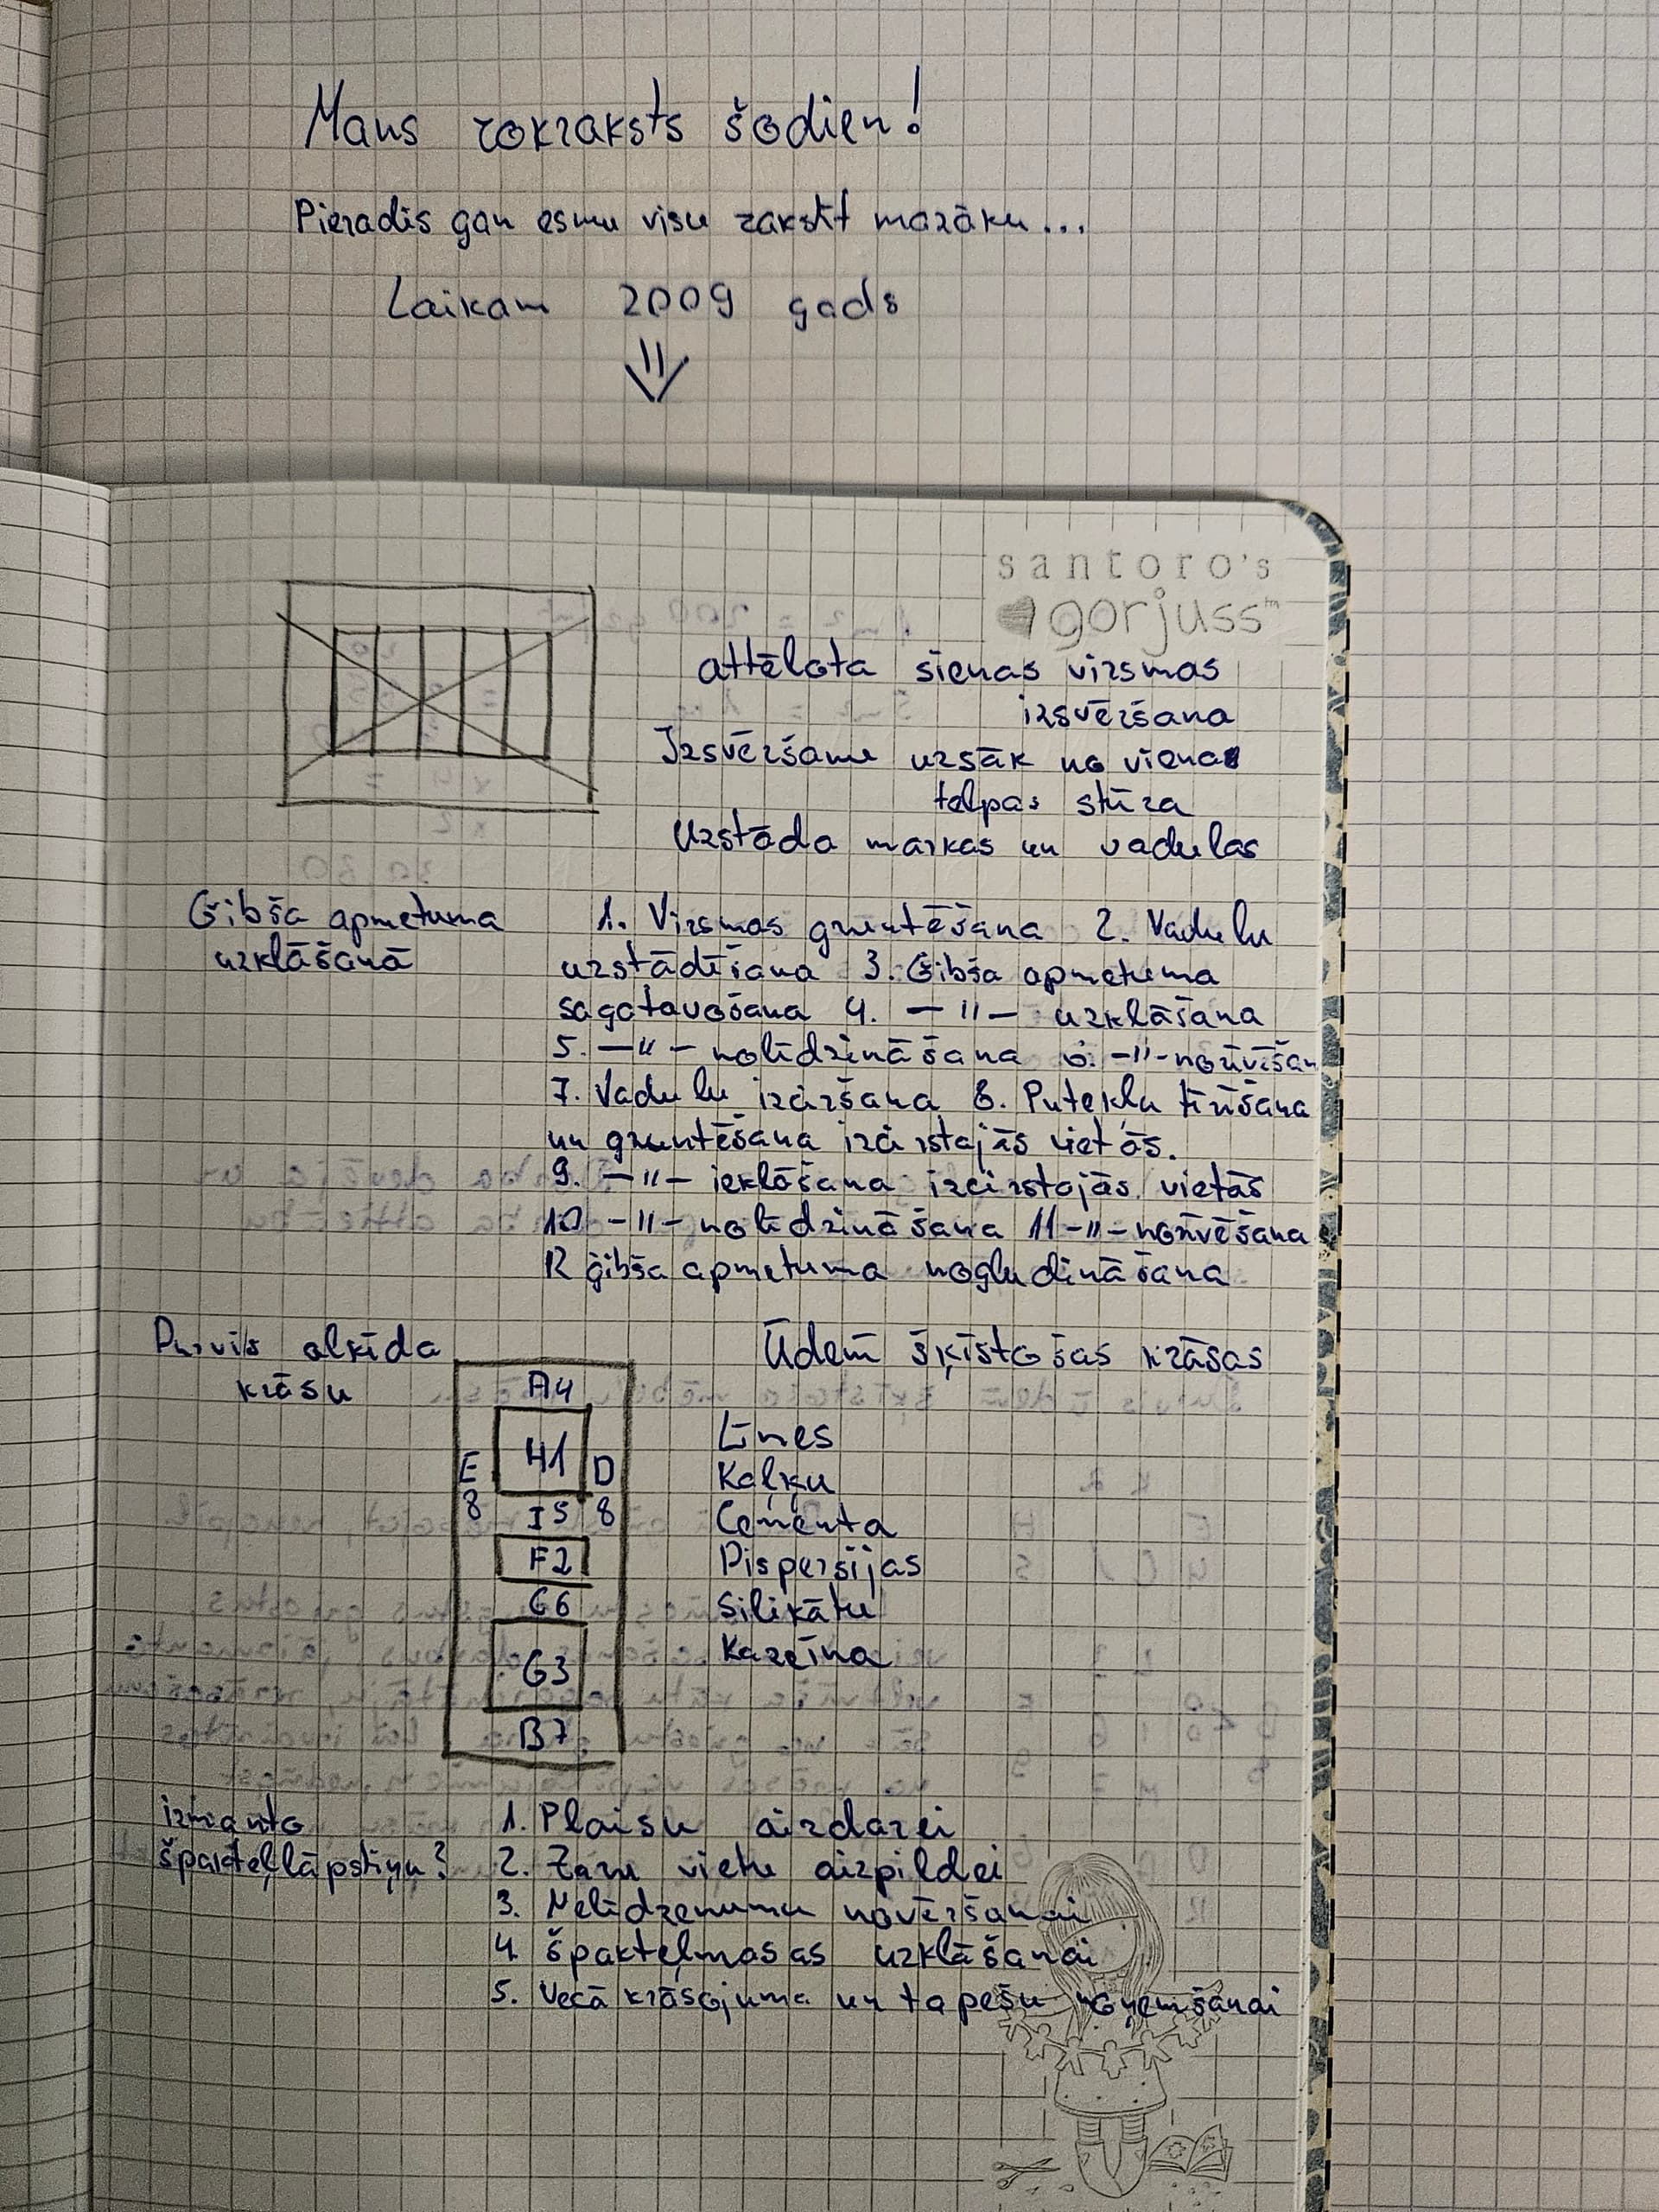 Mans rokraksts šodien!
Pieradis gan esmu visu rakstīt mazāku...
Laikam 2009 gads
santoro's
gorjuss™
attēlota sienas virsmas
izsvēršana
Izsvēršanu uzsāk no vienas
telpas stūra
Uzstāda markas un vadulas
Ģibša apmetuma
uzklāšanā
1. Virsmas gruntēšana 2. Vadulu
uzstādīšana 3. Ģibša apmetuma
sagatavošana 4. —"— uzklāšana
5. —"— nolīdzināšana 6. —"— norīvēšan
7. Vadulu izciršana 8. Putekļu tīrīšana
un gruntēšana izcirstajās vietās.
9. —"— ieklāšana izcirstajās vietās
10 —"— nolīdzināšana 11 —"— norīvēšana
12 ģibša apmetuma nogludināšana
Durvis alkīda
krāsu
A4
H1
E
8
D
8
I5
F2
C6
G3
B7
Ūdenī šķīstošas krāsas
Līmes
Kaļķu
Cementa
Dispersijas
Silikātu
Kazeīna
izmanto
špakteļlāpstiņu?
1. Plaisu aizdarei
2. Zaru vietu aizpildei
3. Nelīdzenumu novēršanai
4 špakteļmasas uzklāšanai
5. Vecā krāsojuma un tapešu noņemšanai